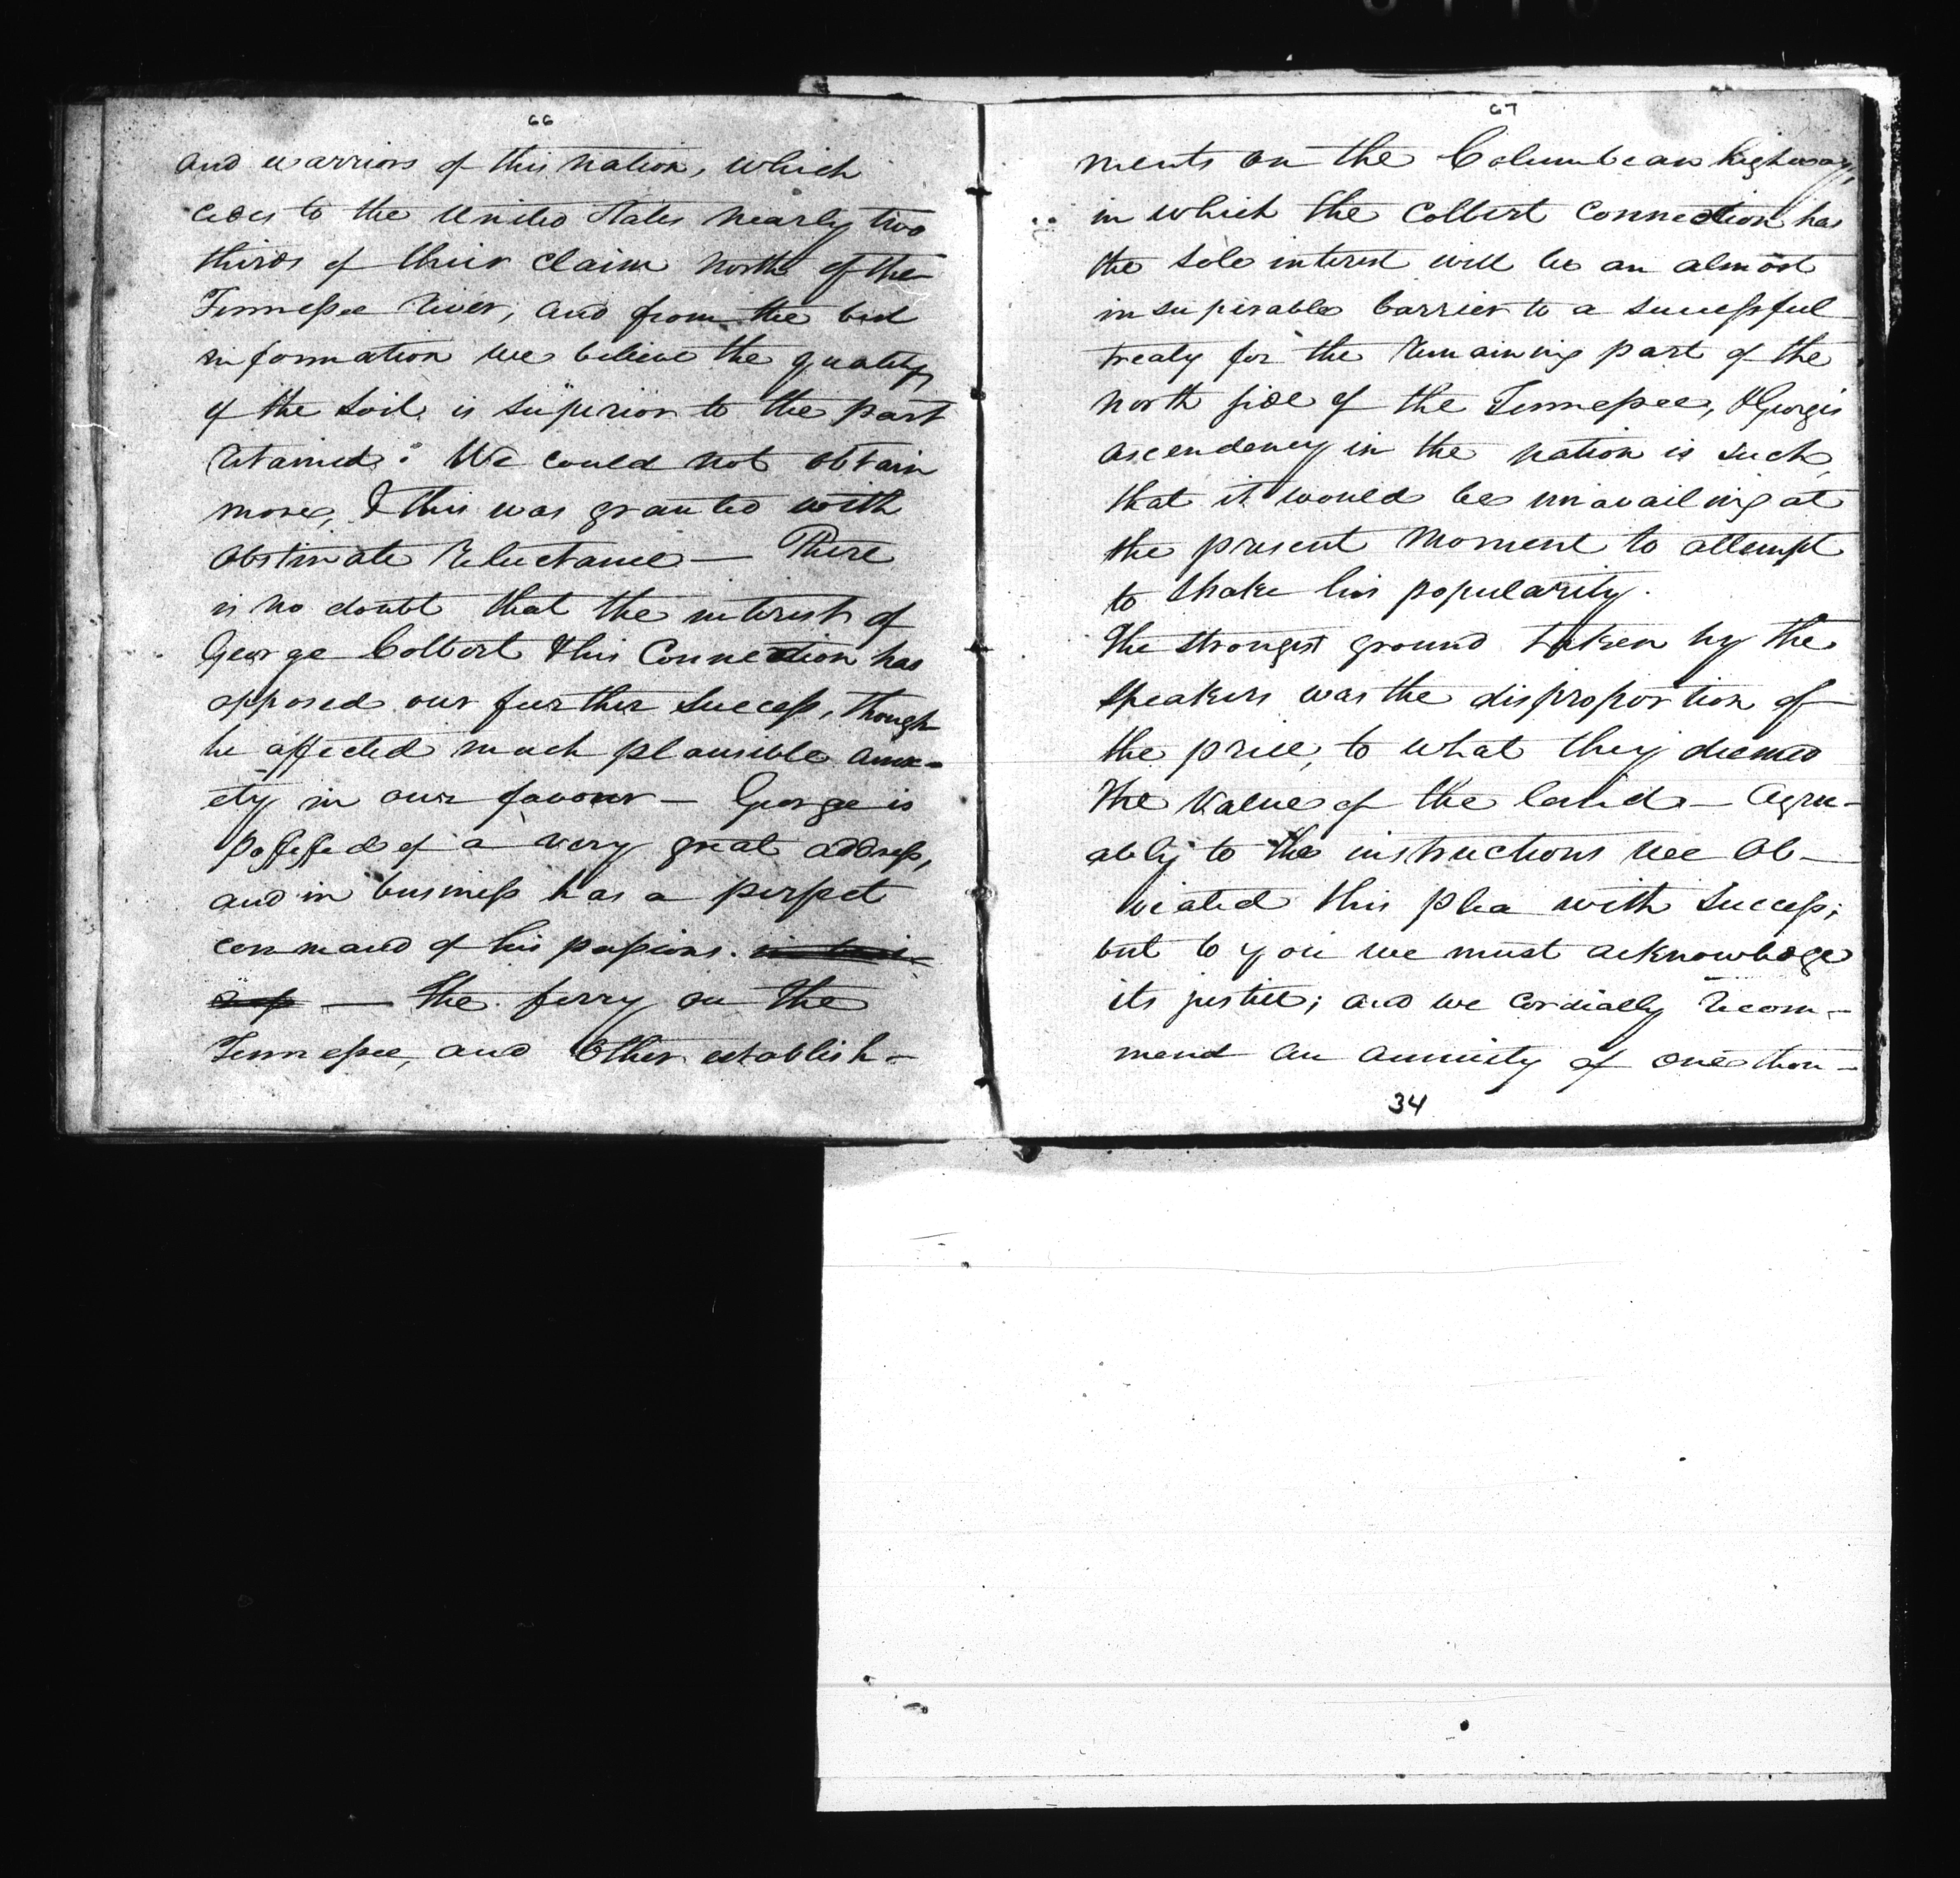 66
and warriors of this nation, which
cedes to the United States nearly two
thirds of their claim north of the
Tennessee River, and from the best
information we believe the quality
of the soil is superior to the part
retained: We could not obtain
more, & this was granted with
obstinate reluctance — There
is no doubt that the interest of
George Colbert & his Connection has
opposed our further success, though
he affected much plausible anx-
ety in our favour — George is
possessed of a very great address,
and in business has a perfect
command of his passions.
— The ferry on the
Tennessee, and other establish-
67
ments on the Columbean highway,
in which the Colbert Connection has
the sole interest will be an almost
insuperable barrier to a successful
treaty for the remaining part of the
north side of the Tennessee, & Georges
ascendency in the nation is such
that it would be unavailing at
the present moment to attempt
to shake his popularity.
The strongest ground taken by the
speakers was the disproportion of
the price, to what they deemed
the value of the land — Agree-
ably to the instructions we ob-
viated this plea with success;
but to you we must acknowledge
its justice; and we cordially recom-
mend an annuity of one thou-
34